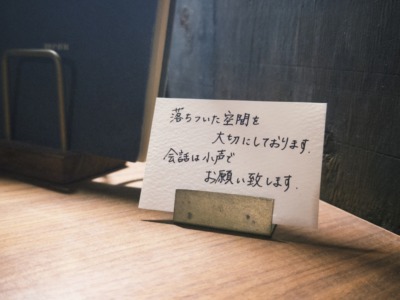 落ちついた空間を
大切にしております.
会話は小声で
お願い致します.